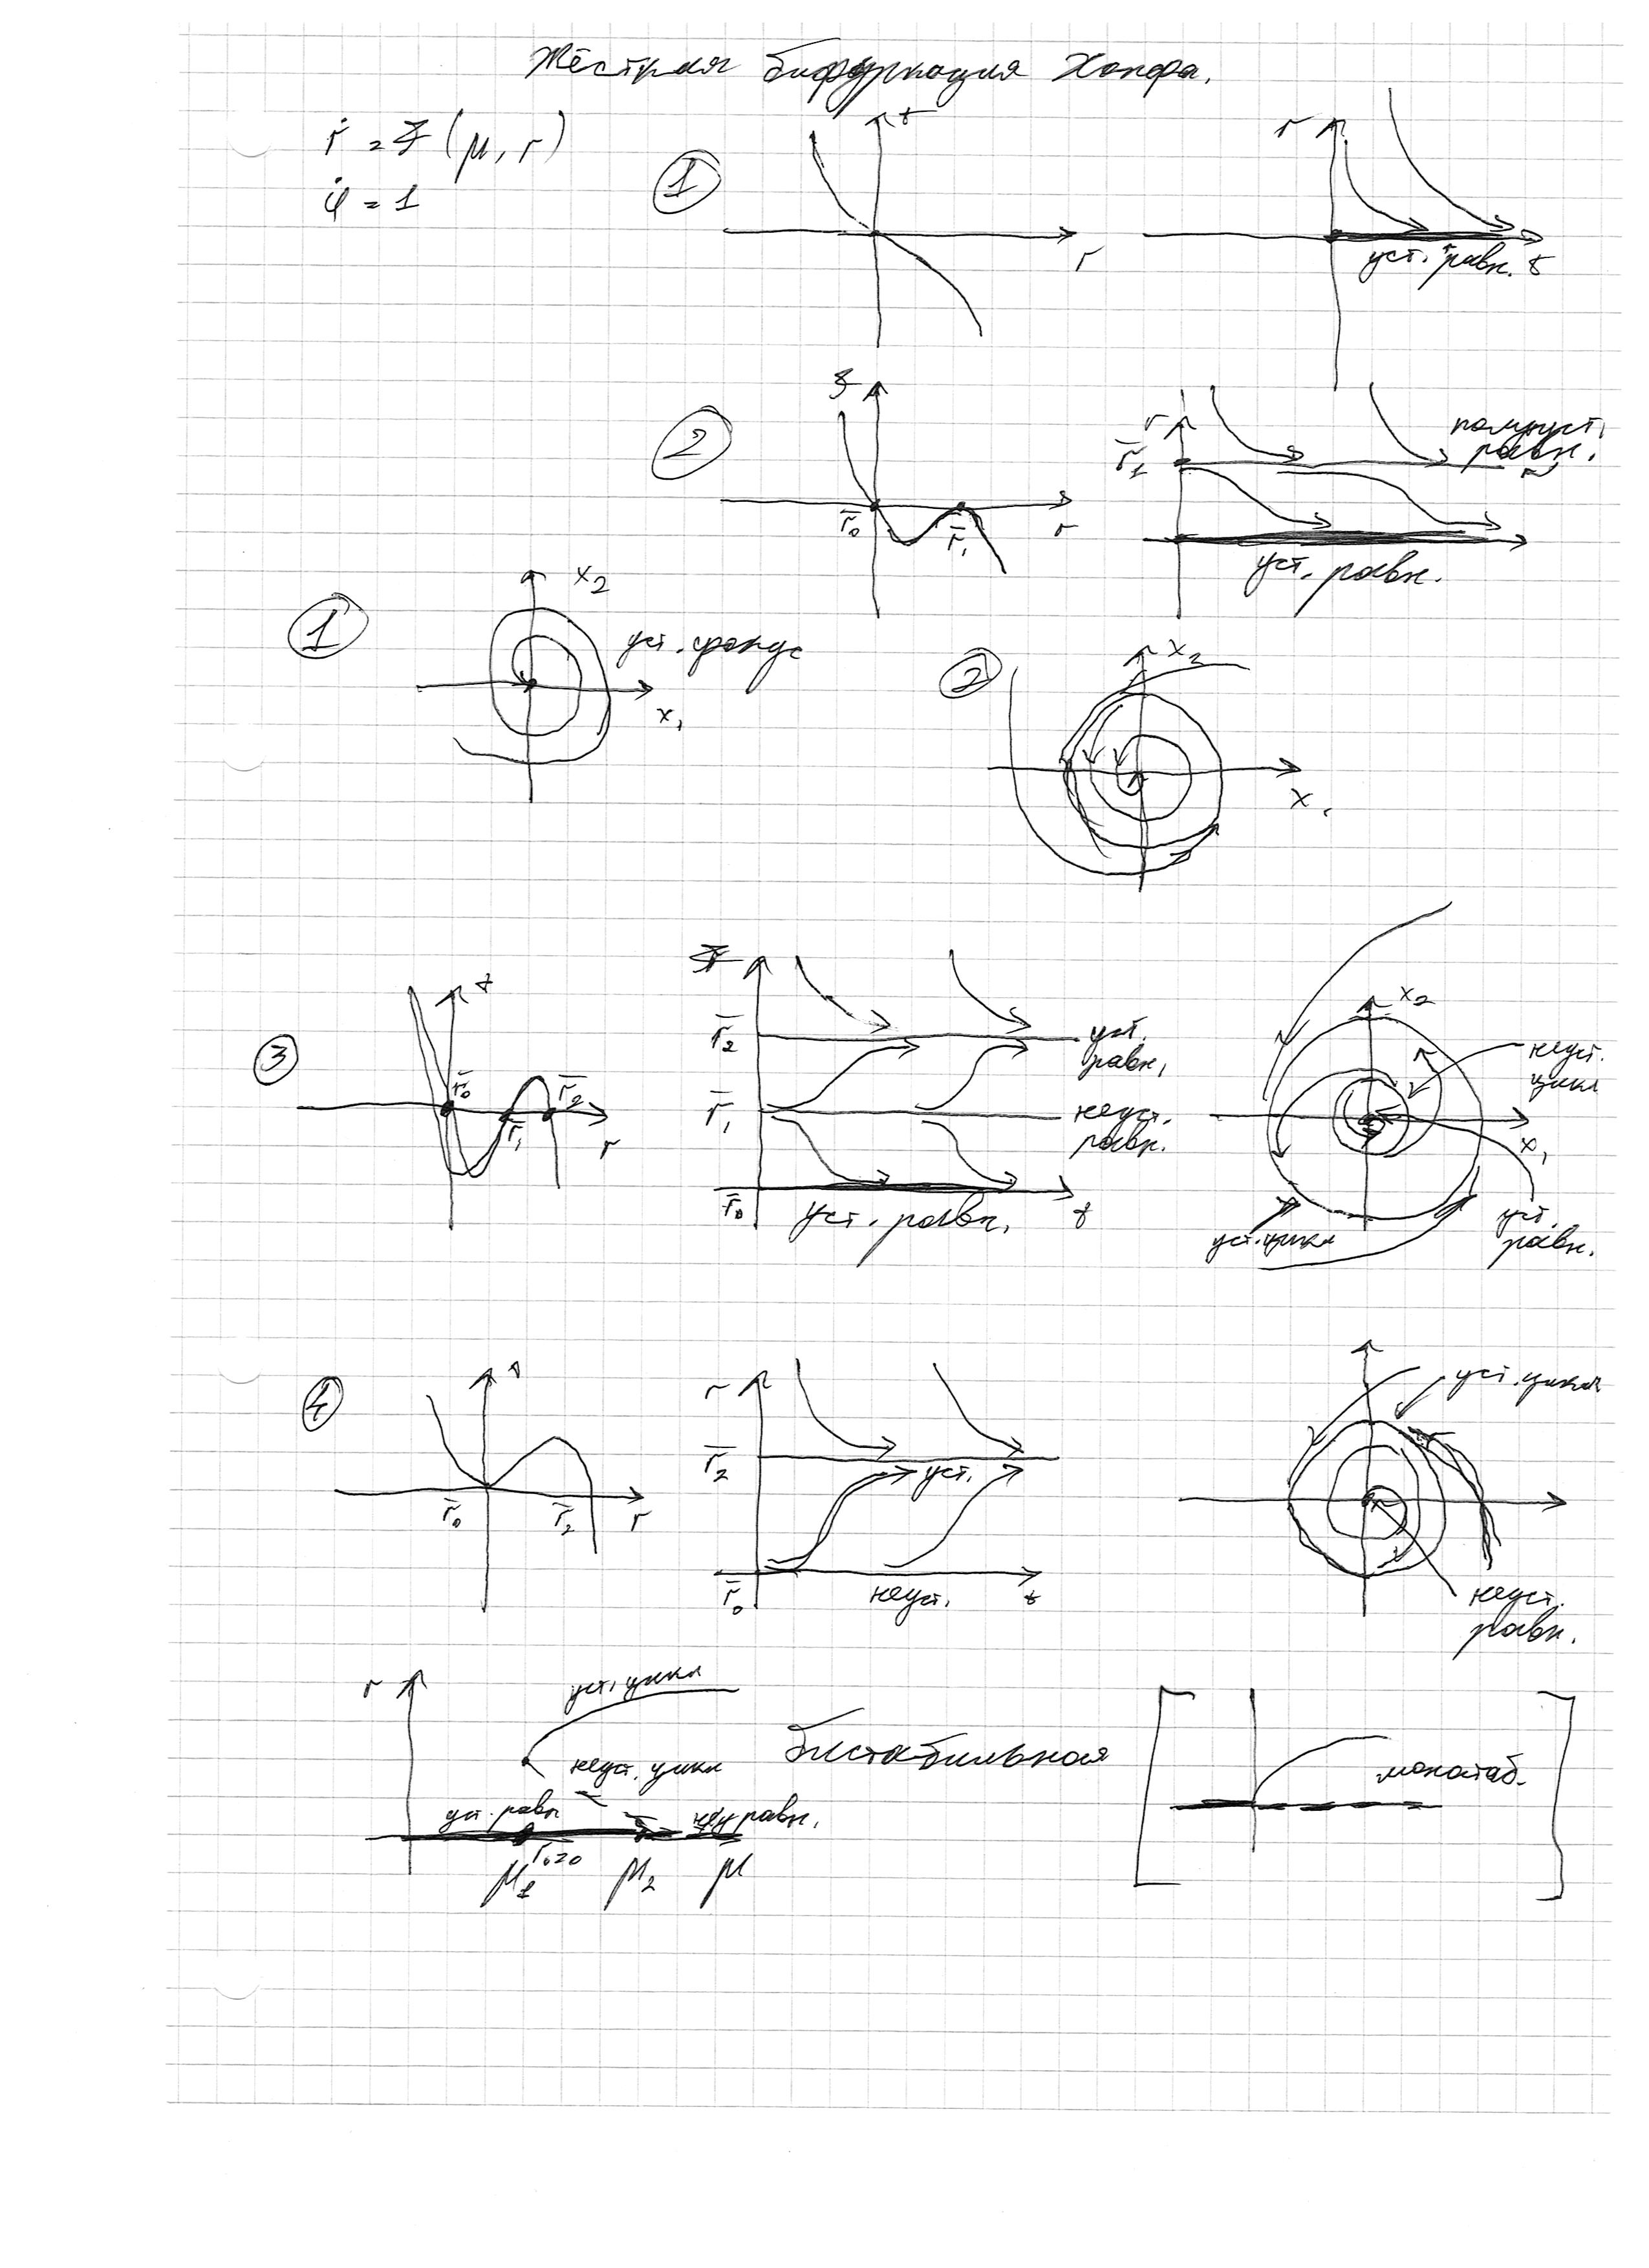 Жёсткая бифуркация Хопфа.
ṙ = F(μ, r)
φ̇ = 1
①
r
r
уст. равн. t
②
F
r̄₀
r̄₁
r
r
r̄₁
полууст.
равн.
уст. равн.
①
x₂
уст. фокус
x₁
②
x₂
x₁
③
r̄₀
r̄₁
r̄₂
r
r̄₂
уст.
равн.
r̄₁
неуст.
равн.
r̄₀
уст. равн.
t
x₂
неуст.
цикл
x₁
уст. цикл
уст.
равн.
④
r̄₀
r̄₂
r
r
r̄₂
уст.
r̄₀
неуст.
t
уст. цикл
неуст.
равн.
r
уст. цикл
неуст. цикл
уст. равн
неу равн.
r₀=0
μ₁
μ₂
μ
бистабильная
моностаб.